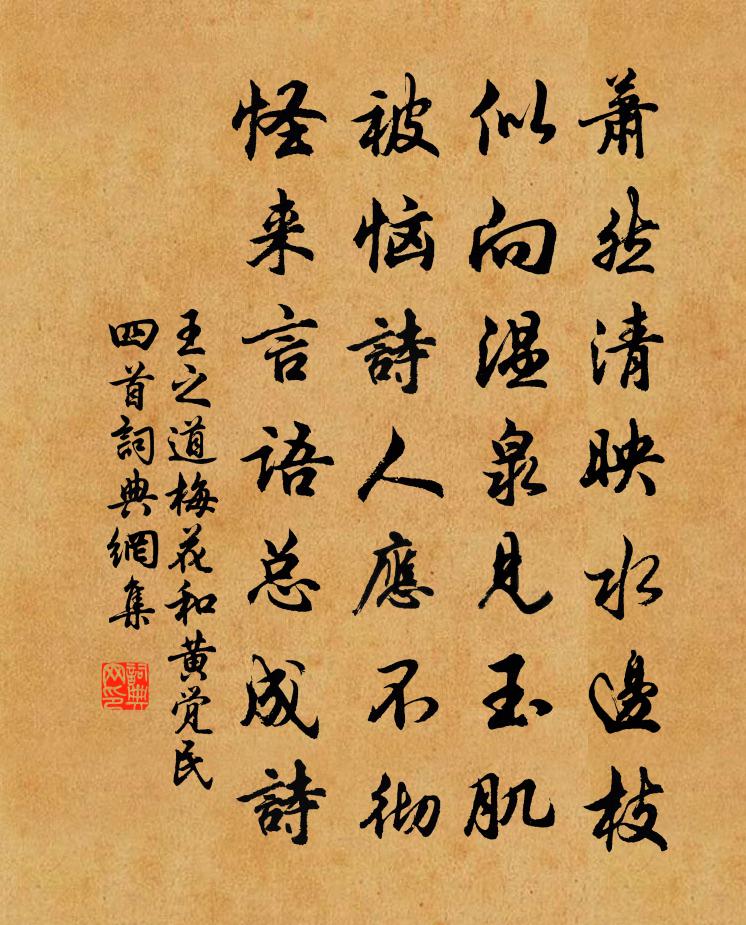 萧然清映水邊枝
似向温泉見玉肌
被恼詩人應不彻
怪来言语总成詩
王之道梅花和黄觉民
四首詞典網集
詞典网印